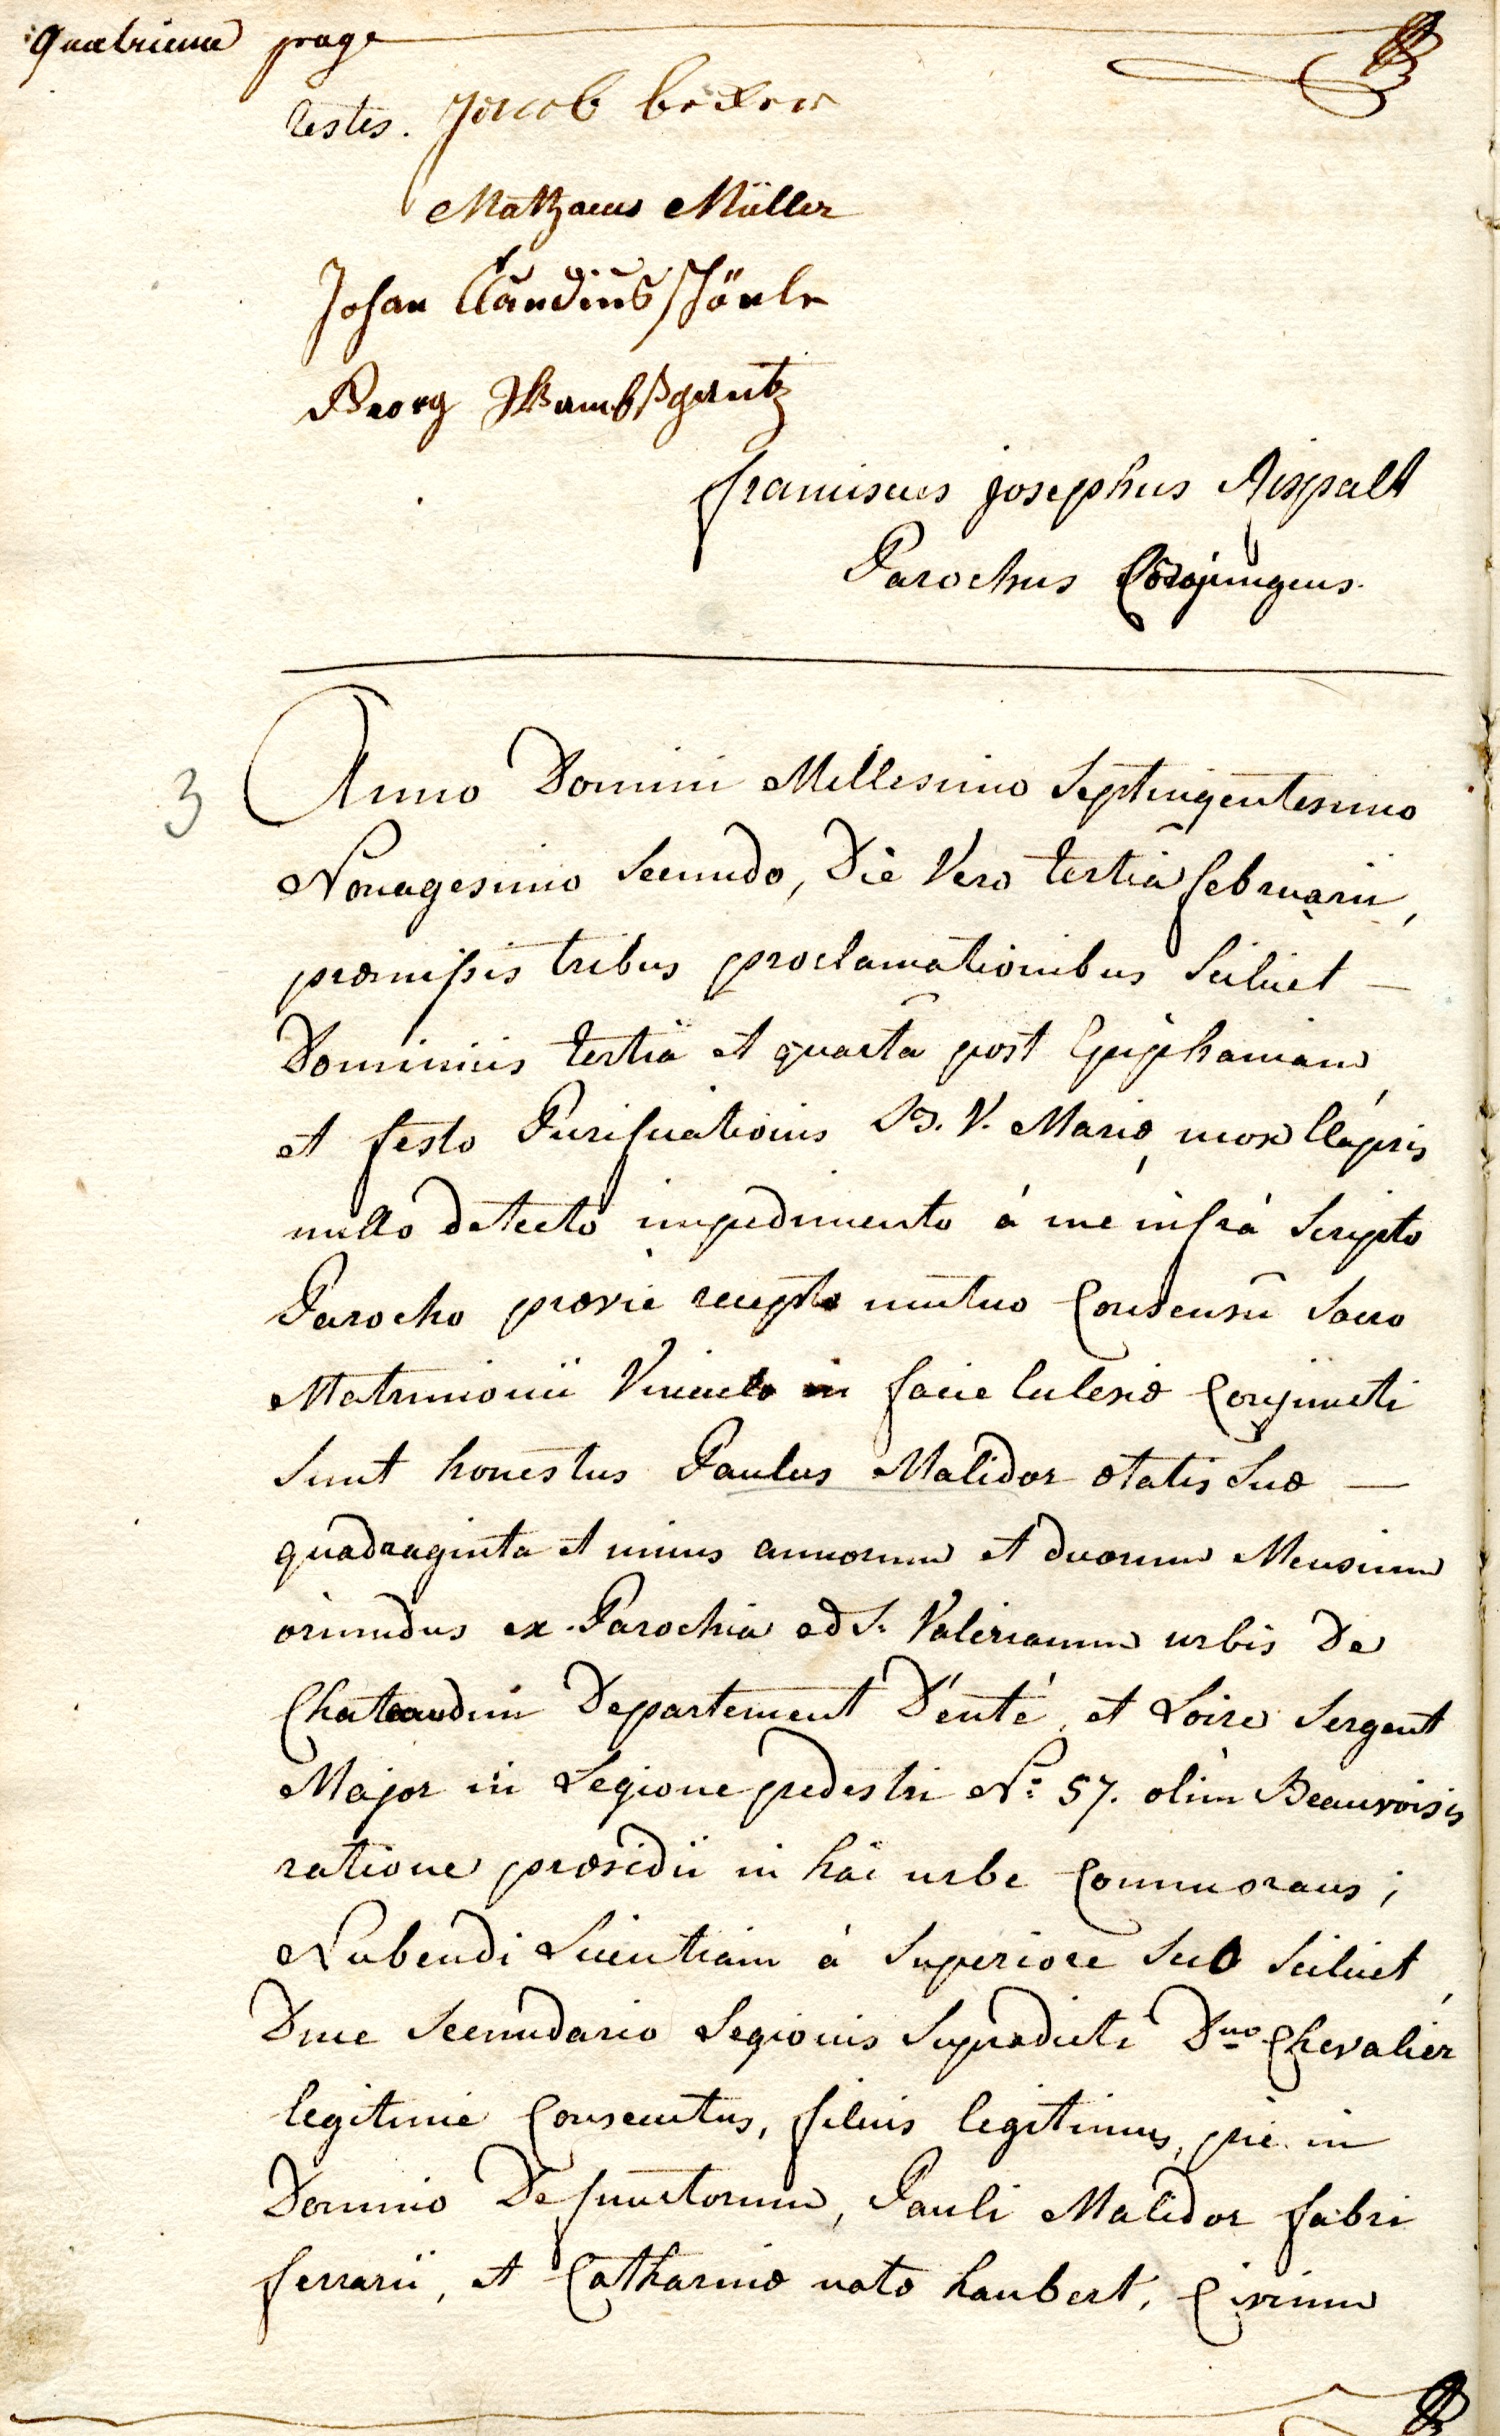 quatrieme page
testes. Jacob becker
Mathaeus Müller
Johan Claudius
Georg
franciscus josephus Rispalt
Parochus Conjungens.
3 Anno Domini Millesimo Septingentesimo
Nonagesimo Secundo, Die Vero tertiâ februarii,
præmissis tribus proclamationibus Scilicet —
Dominicis tertiâ et quartâ post Epiphaniam
et festo Purificationis B. V. Mariæ, mox Elapsis
nullo detecto impedimento á me infrá Scripto
Parocho prævie recepto mutuo Consensu Sacro
Matrimonii Vinculo in facie Eclesiæ Conjuncti
Sunt honestus Paulus Malidor ætatis Suæ —
quadraginta et unius annorum et duorum Mensium
oriundus ex Parochia ad S. Valerianum urbis De
Chateaudun Departement D'eute, et Loire Sergent
Major in Legione pedestri N.º 57. olim Beauvoisis
ratione præsidii in hâc urbe Commorans;
Nubendi Licentiam á Superiore Suo Scilicet,
Duce Secundario Legionis Supradictæ Dno Chevalier
legitime Consecutus, filius legitimus, pie in
Domino Defunctorum, Pauli Malidor fabri
ferrarii, et Catharinæ natæ haubert, Civium